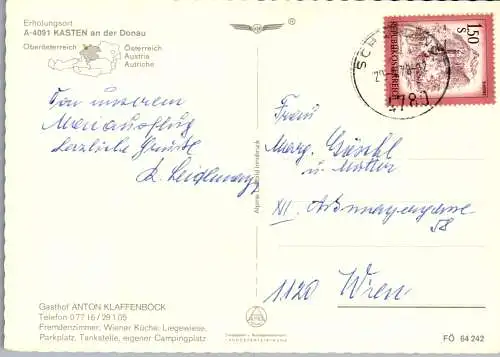 Erholungsort
A-4091 KASTEN an der Donau
Oberösterreich
Österreich
Austria
Autriche
®
1.50
S
REPUBLIK ÖSTERREICH
SCH
4780
Von unserem
Maiausflug
herzliche Grüße
Frau
Marg. Göschl
u. Mutter
XII.
58
1120 Wien
Gasthof ANTON KLAFFENBÖCK
Telefon 077 16 / 291 05
Fremdenzimmer, Wiener Küche, Liegewiese,
Parkplatz, Tankstelle, eigener Campingplatz
FÖ 64 242